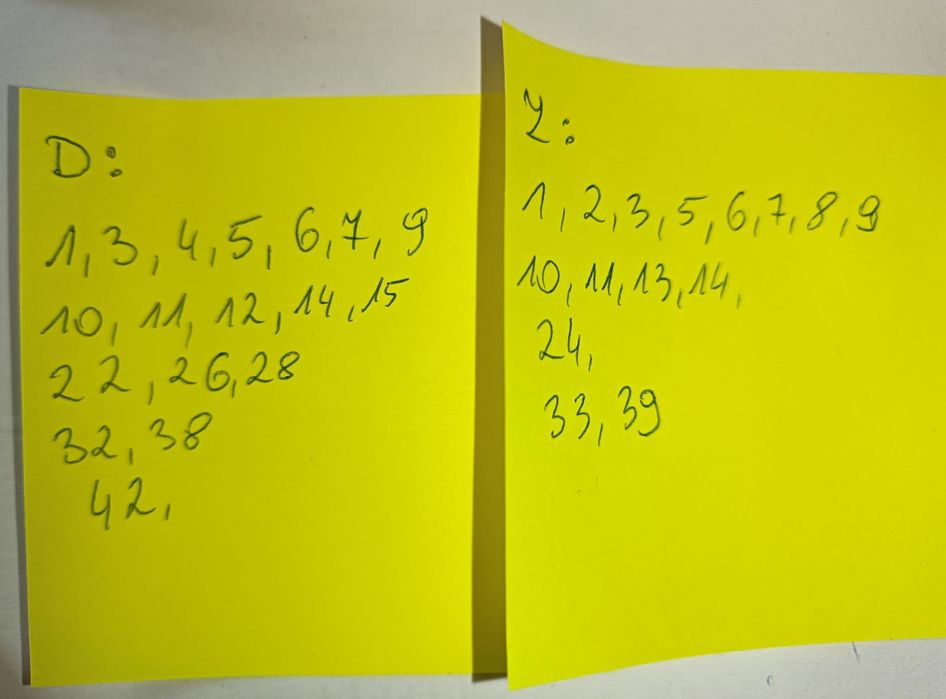 D:
1, 3, 4, 5, 6, 7, 9
10, 11, 12, 14, 15
22, 26, 28
32, 38
42,
Z:
1, 2, 3, 5, 6, 7, 8, 9
10, 11, 13, 14,
24,
33, 39